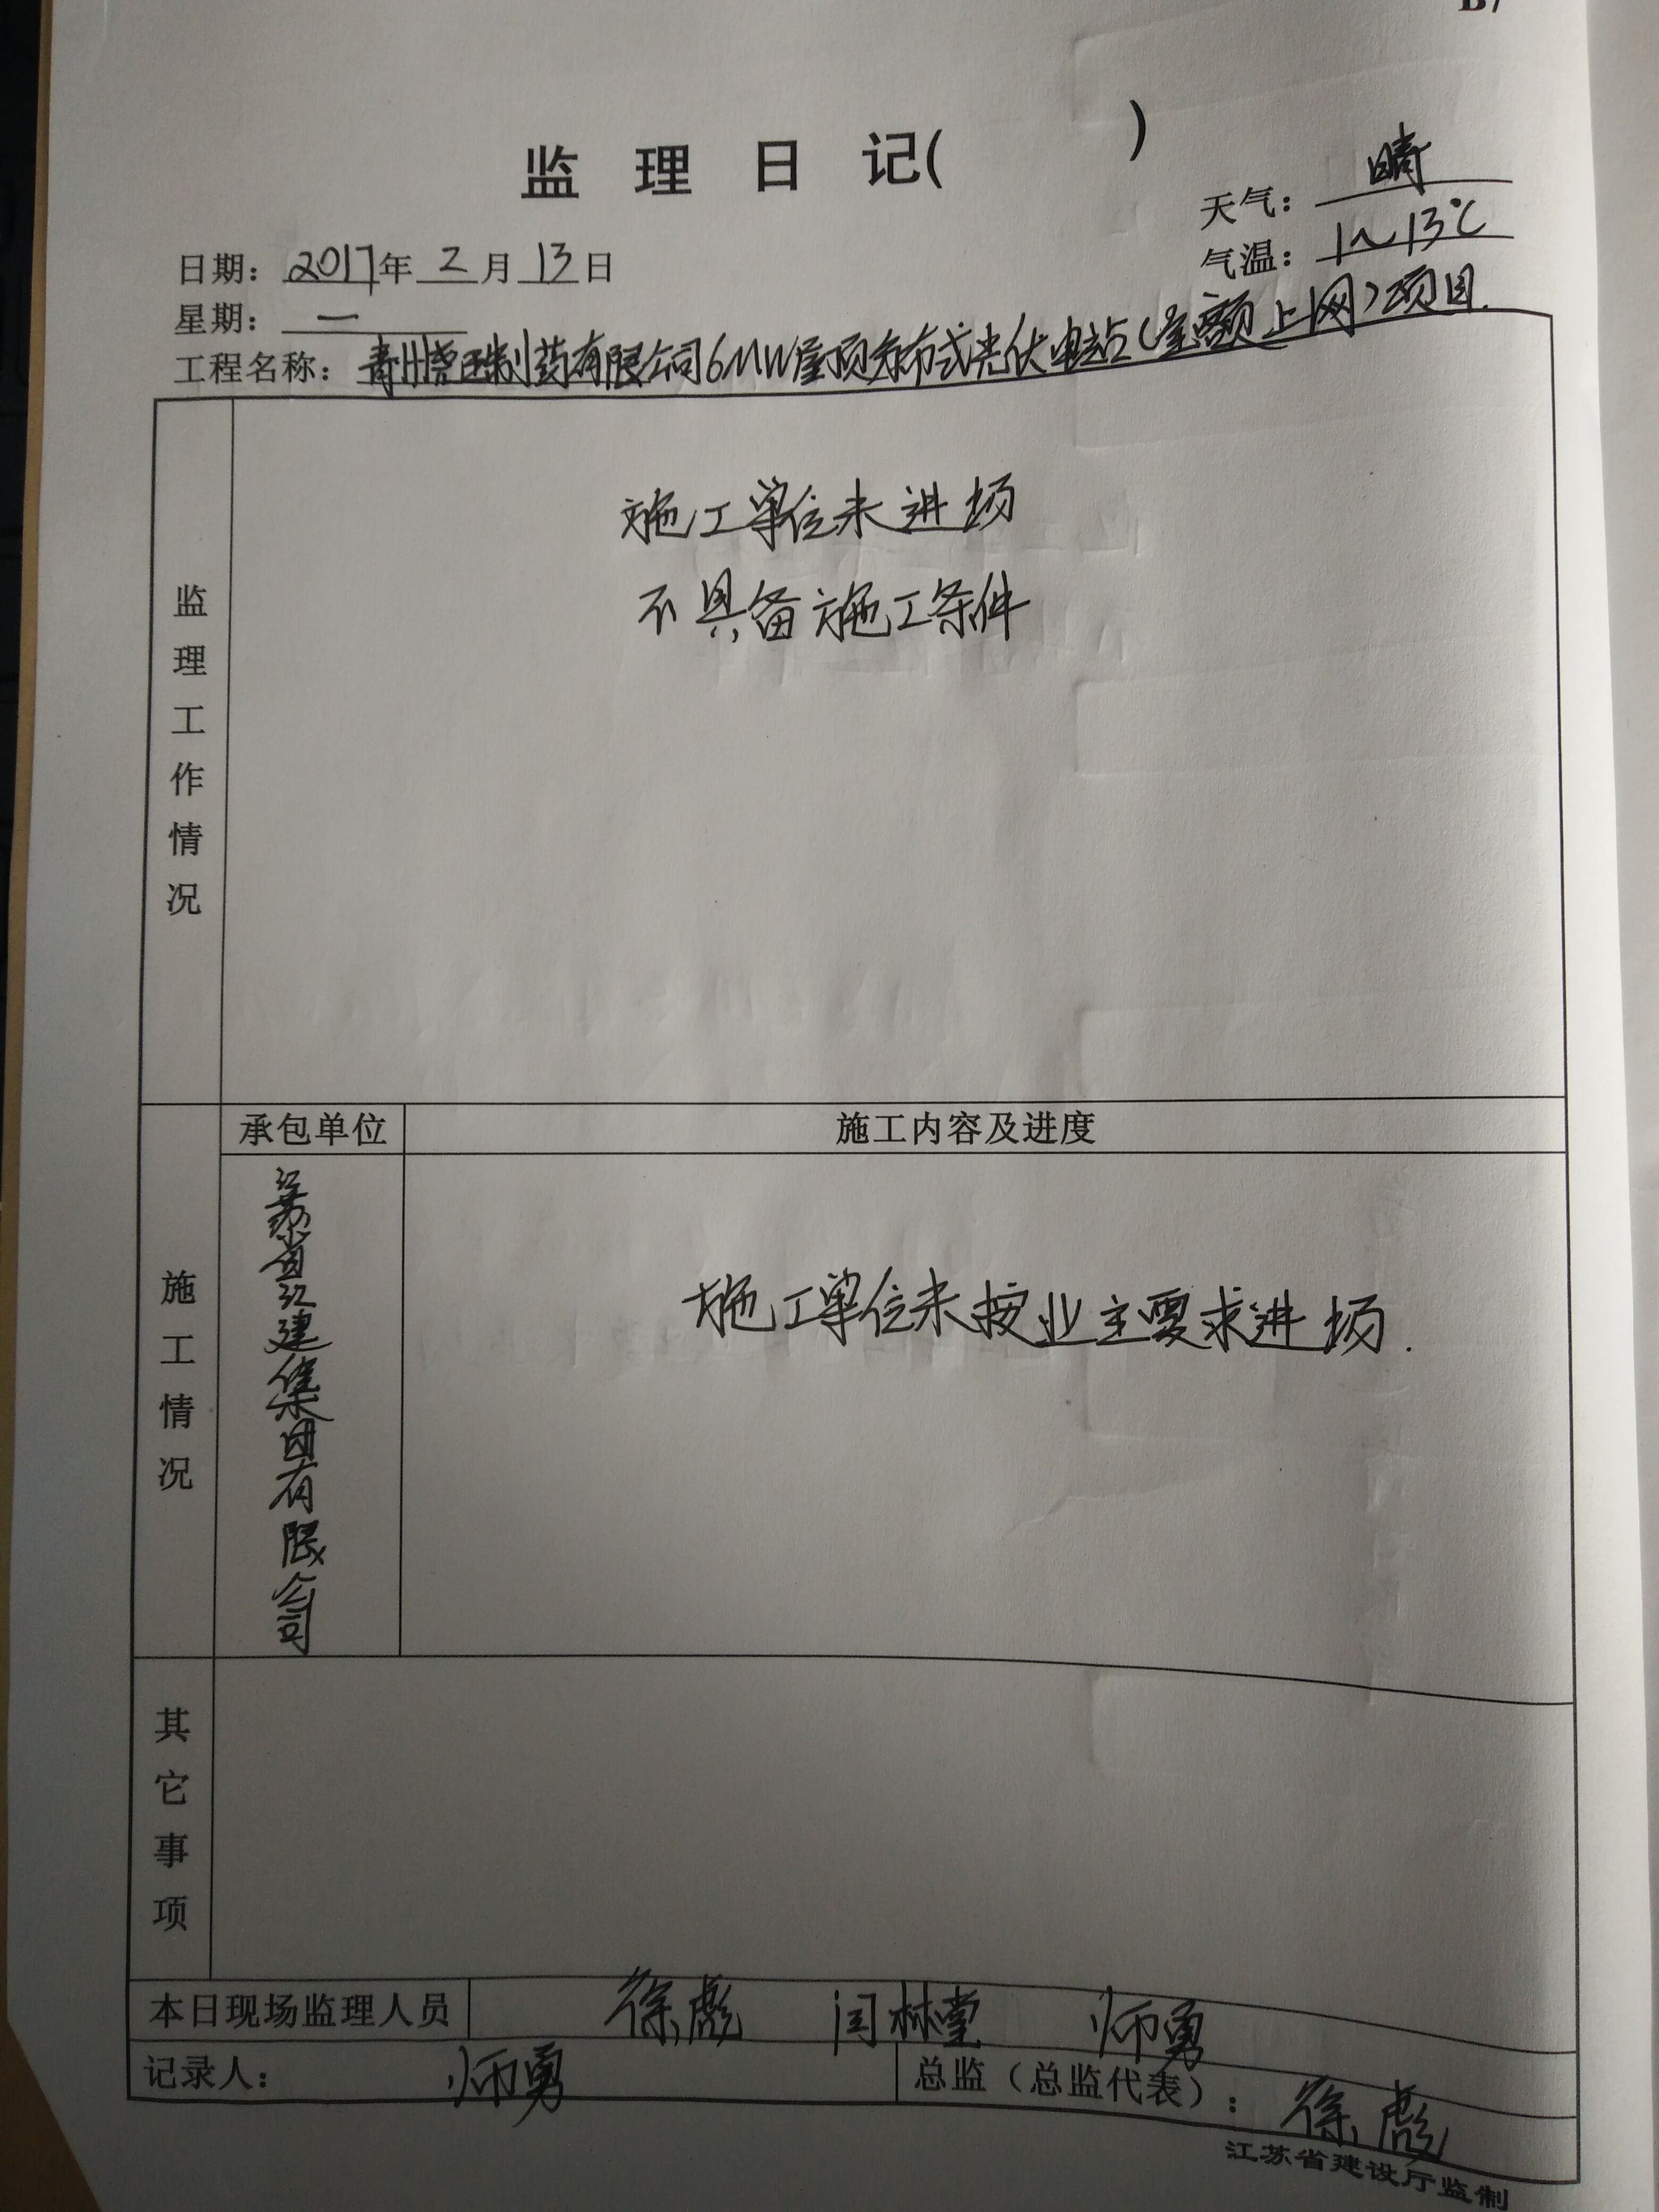 B7
监理日记( )
天气：晴
日期：2017年2月13日
气温：1~13℃
星期：一
工程名称：青州尧王制药有限公司6MW屋顶分布式光伏电站(全额上网)项目.
监理工作情况
施工单位未进场
不具备施工条件
施工情况
承包单位
施工内容及进度
江苏省江建集团有限公司
施工单位未按业主要求进场.
其它事项
本日现场监理人员
徐彪 闫林堂 师勇
记录人：师勇
总监（总监代表）：徐彪
江苏省建设厅监制